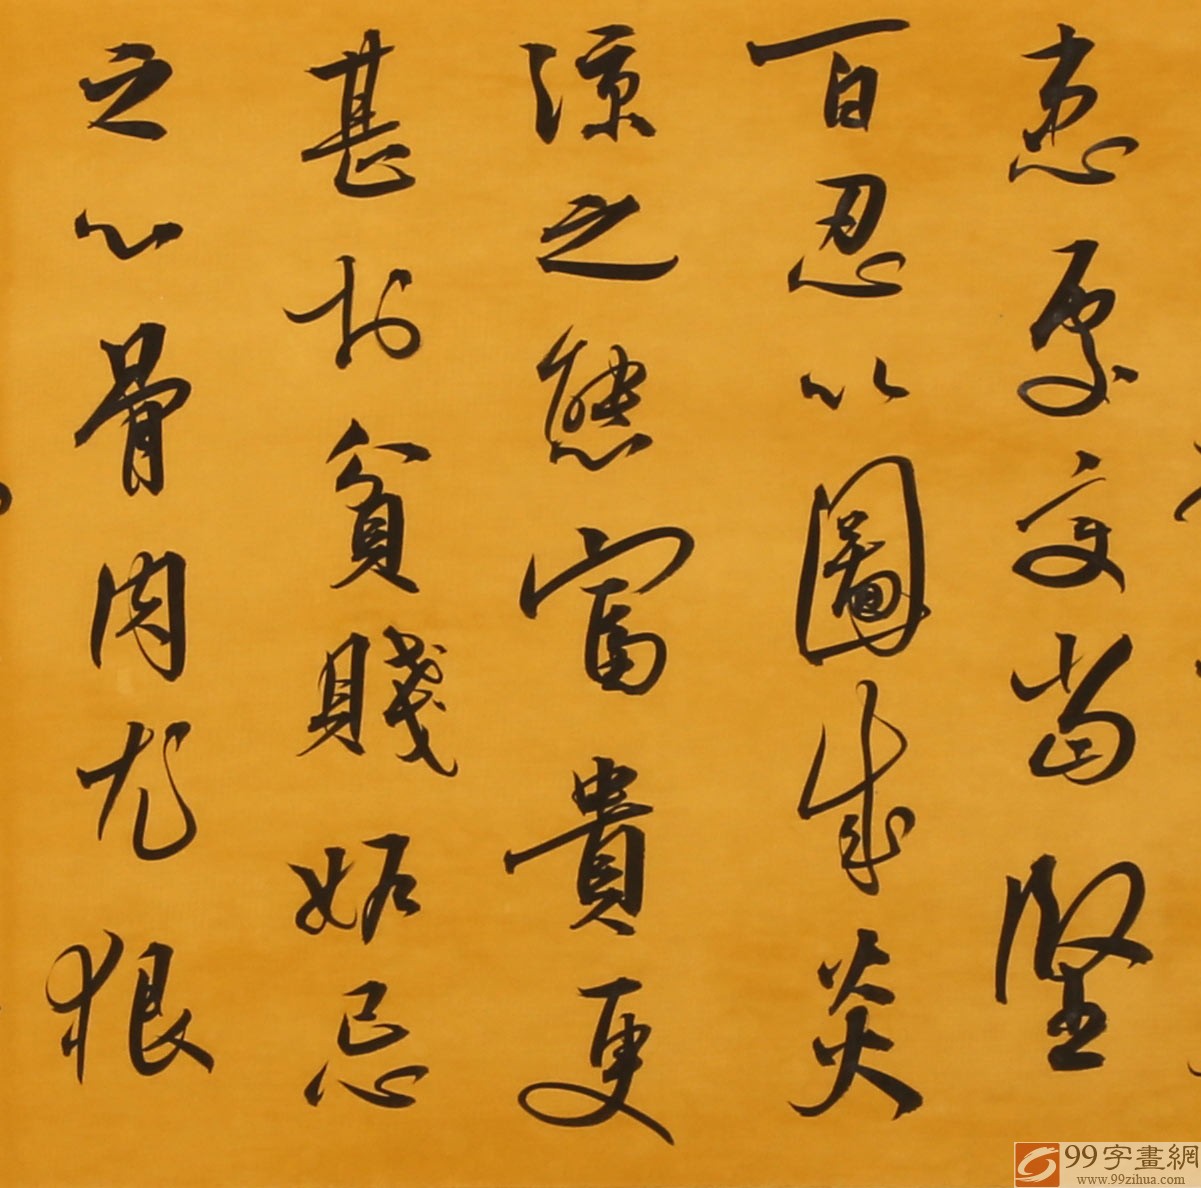 患處變當堅
百忍以圖成炎
涼之態富貴更
甚於貧賤妬忌
之心骨肉尤狠
99字畫網
www.99zihua.com